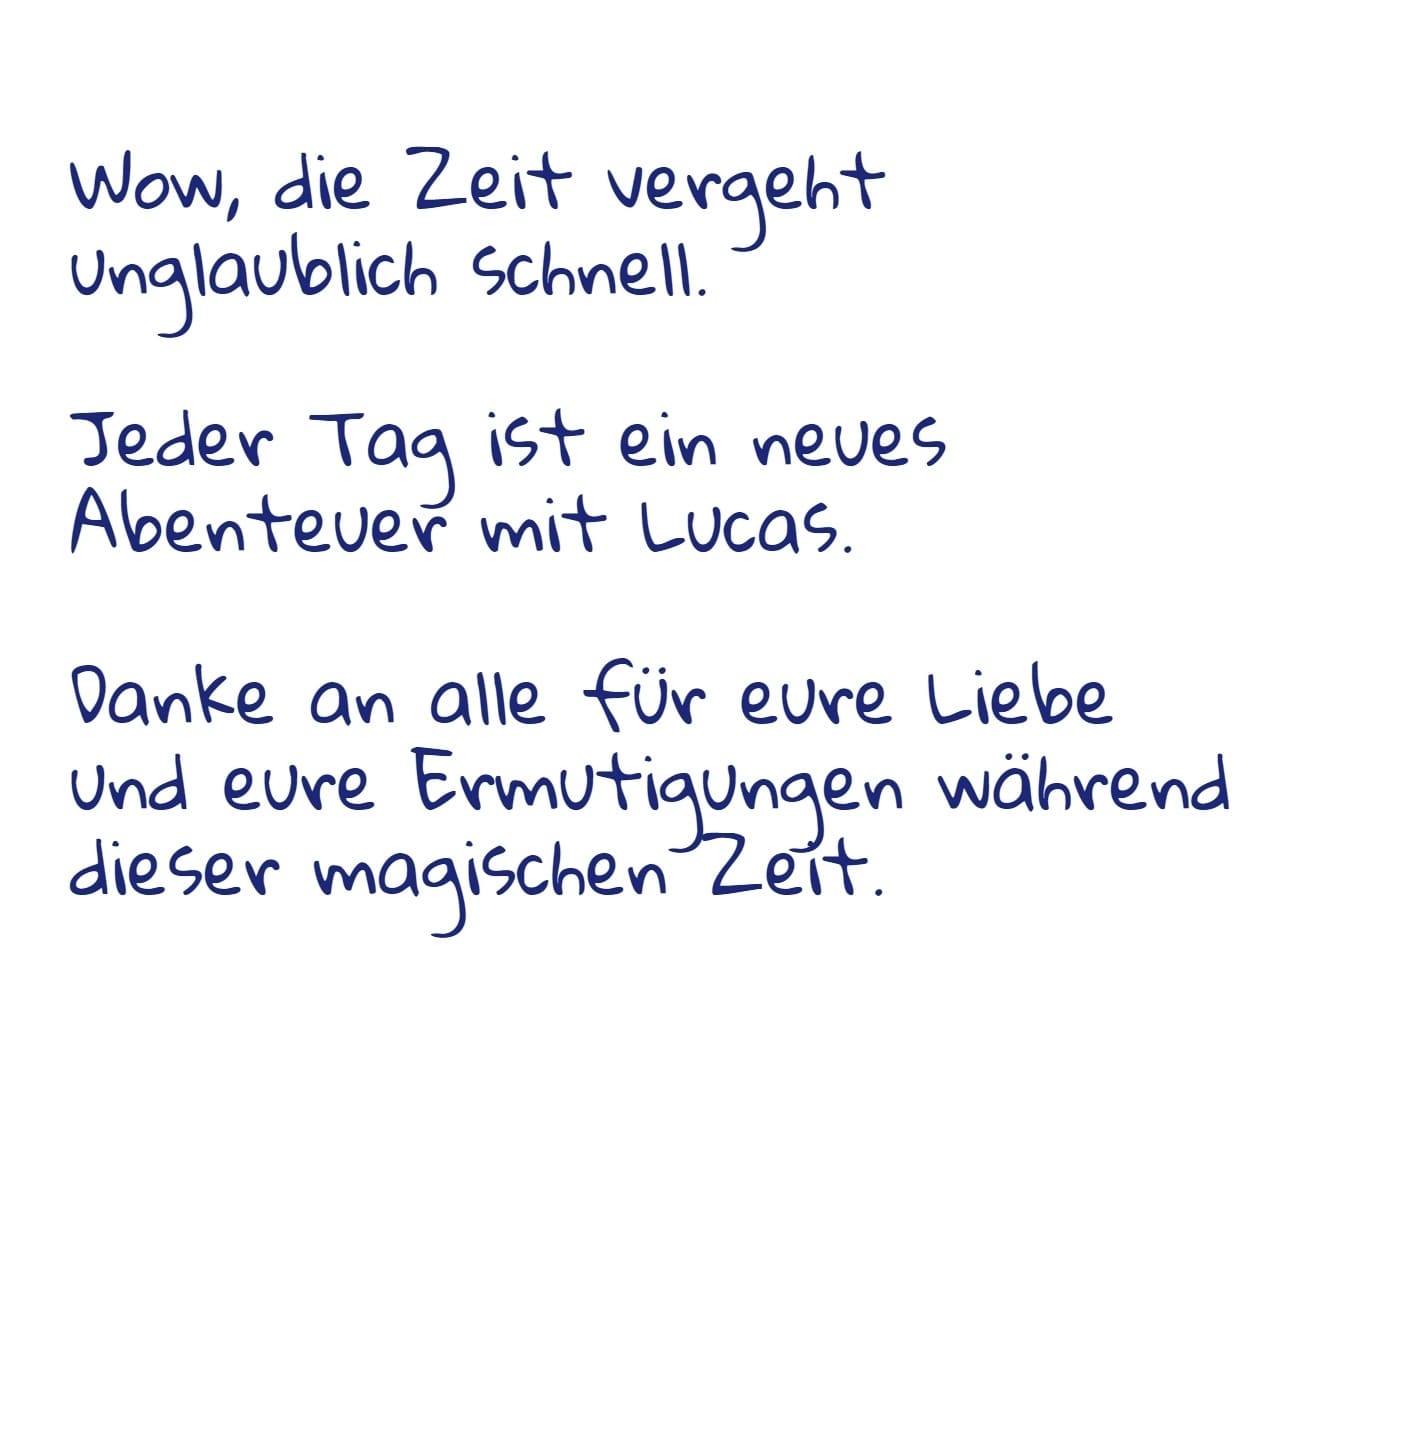 Wow, die Zeit vergeht
unglaublich schnell.
Jeder Tag ist ein neues
Abenteuer mit Lucas.
Danke an alle für eure Liebe
und eure Ermutigungen während
dieser magischen Zeit.